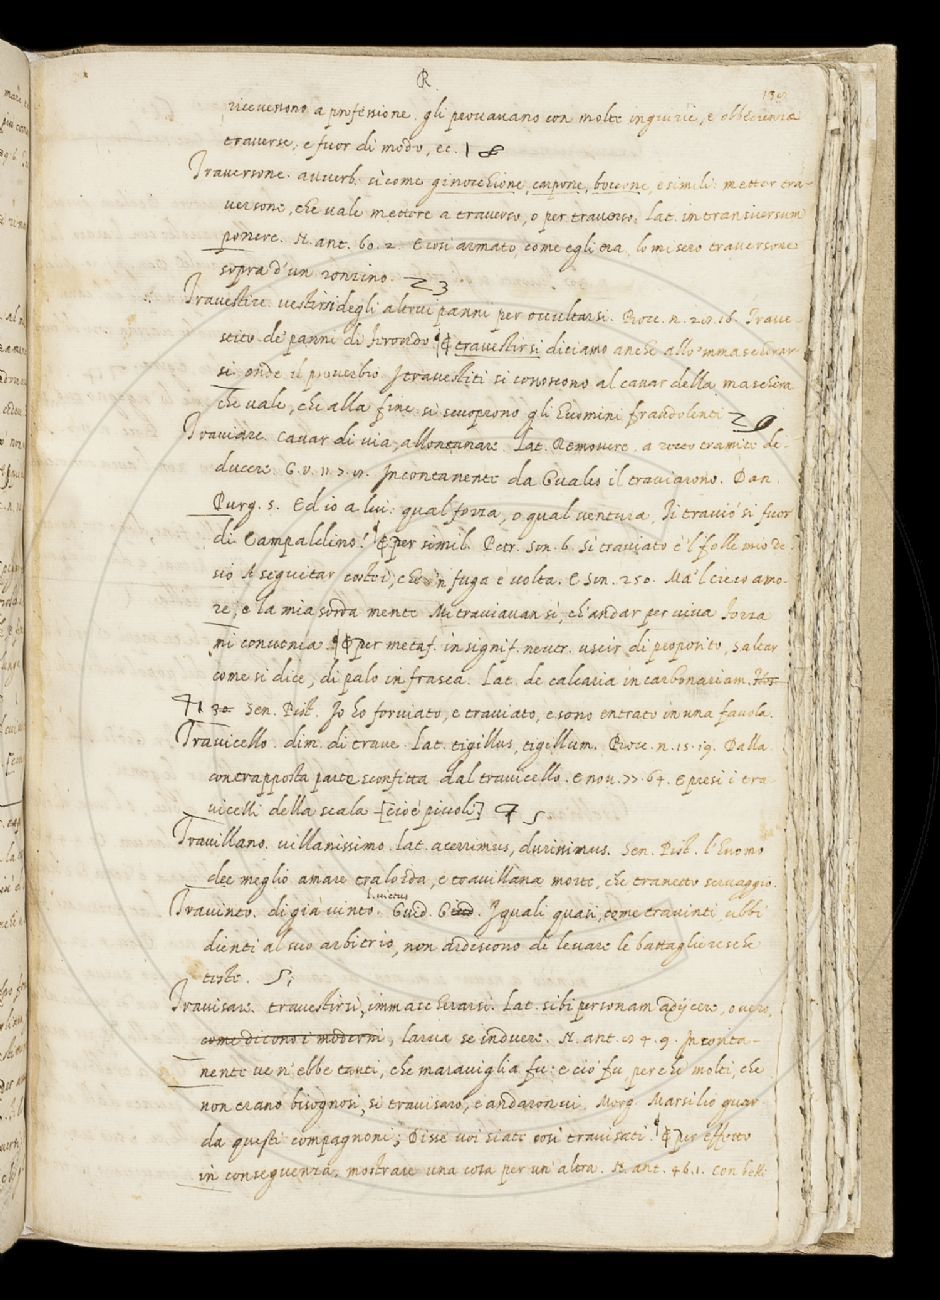 R
ricevessono a professione. gli provavano con molte ingiurie, e obbedienze
traverse, e fuor di modo, ec. 18
Traversone. avverb. sì come ginocchione, carpone, boccone, e simili: metter tra-
versone, che vale mettere a traverso, o per traverso. Lat. in transversum
ponere. N. ant. 60. 2. E così armato, come egli era, lo misero traversone
sopra d'un ronzino. 23
Travestire. vestirsi degli altrui panni per occultarsi. Bocc. n. 28. 16. Trave-
stito de' panni di Ferondo. E travestirsi diciamo anche allo 'mmascherar-
si. onde il proverbio I travestiti si conoscono al cavar della maschera
che vale, che alla fine si scuoprono gli huomini fraudolenti 29
Traviare. Cavar di via, allontanare. Lat. Removere, a recto tramite de-
ducere. G. v. 11. 7. Incontanente da Gualio il traviarono. Dan.
Purg. 5. Ed io a lui: qual forza, o qual ventura, Ti traviò sì fuor
di Campaldino! E per simil. Petr. Son. 6. Sì traviato è 'l folle mio de-
sio A seguitar costei, che in fuga è volta. E Son. 250. Ma 'l cieco amo-
re, e la mia sorda mente Mi traviavan sì, ch'andar per viva forza
mi convenia. E per metaf. in signif. neutr. uscir di proposito, saltar
come si dice, di palo in frasca. Lat. de calcaria in carbonariam.
41 Sen. Pist. Io ho forviato, e traviato, e sono entrato in una favola.
Travicello. dim. di trave. Lat. tigillus, tigillum. Bocc. n. 15. 19. Dalla
contrapposta parte sconfitta dal travicello. E nov. 77. 64. E presi i tra-
vicelli della scala [cioè piccoli] 45
Travillano. villanissimo. Lat. acerrimus, durissimus. Sen. Pist. l'huomo
dee meglio amare tralorda, e travillana morte, che tranetto servaggio.
Travinto. di già vinto. l. victus Guid. G. I quali quasi, come travinti, ubbi-
dienti al suo arbitrio, non ardiscono di levare le battagliaresche
teste. 51
Travisare. travestirsi, immascherarsi. Lat. sibi personam adijcere, o vero,
come dicono i moderni, larva se induere. N. ant. 4. 9. Inconta-
nente ve n'ebbe tanti, che maraviglia fu: e ciò fu perchè molti, che
non erano bisognosi, si travisaro, e andaronvi. Morg. Marsilio guar-
da questi compagnoni; Disse voi siate così travisati! E per effetto
in conseguenza, mostrare una cosa per un'altra. N. ant. 46. 1. Con belli